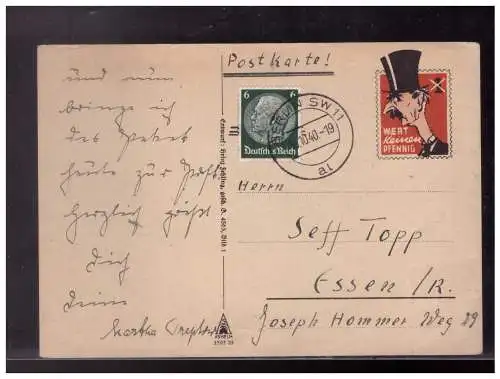 Postkarte!
und nun
bringe ich
das Paket
heute zur Post
Herzlich grüßt
Dich
Deine
Martha
6 6
Deutsches Reich
BERLIN SW 11
10.40.-19
a1
WERT
Keinen
PFENNIG
Herrn
Seff Topp
Essen /R.
Joseph Hommer Weg 29